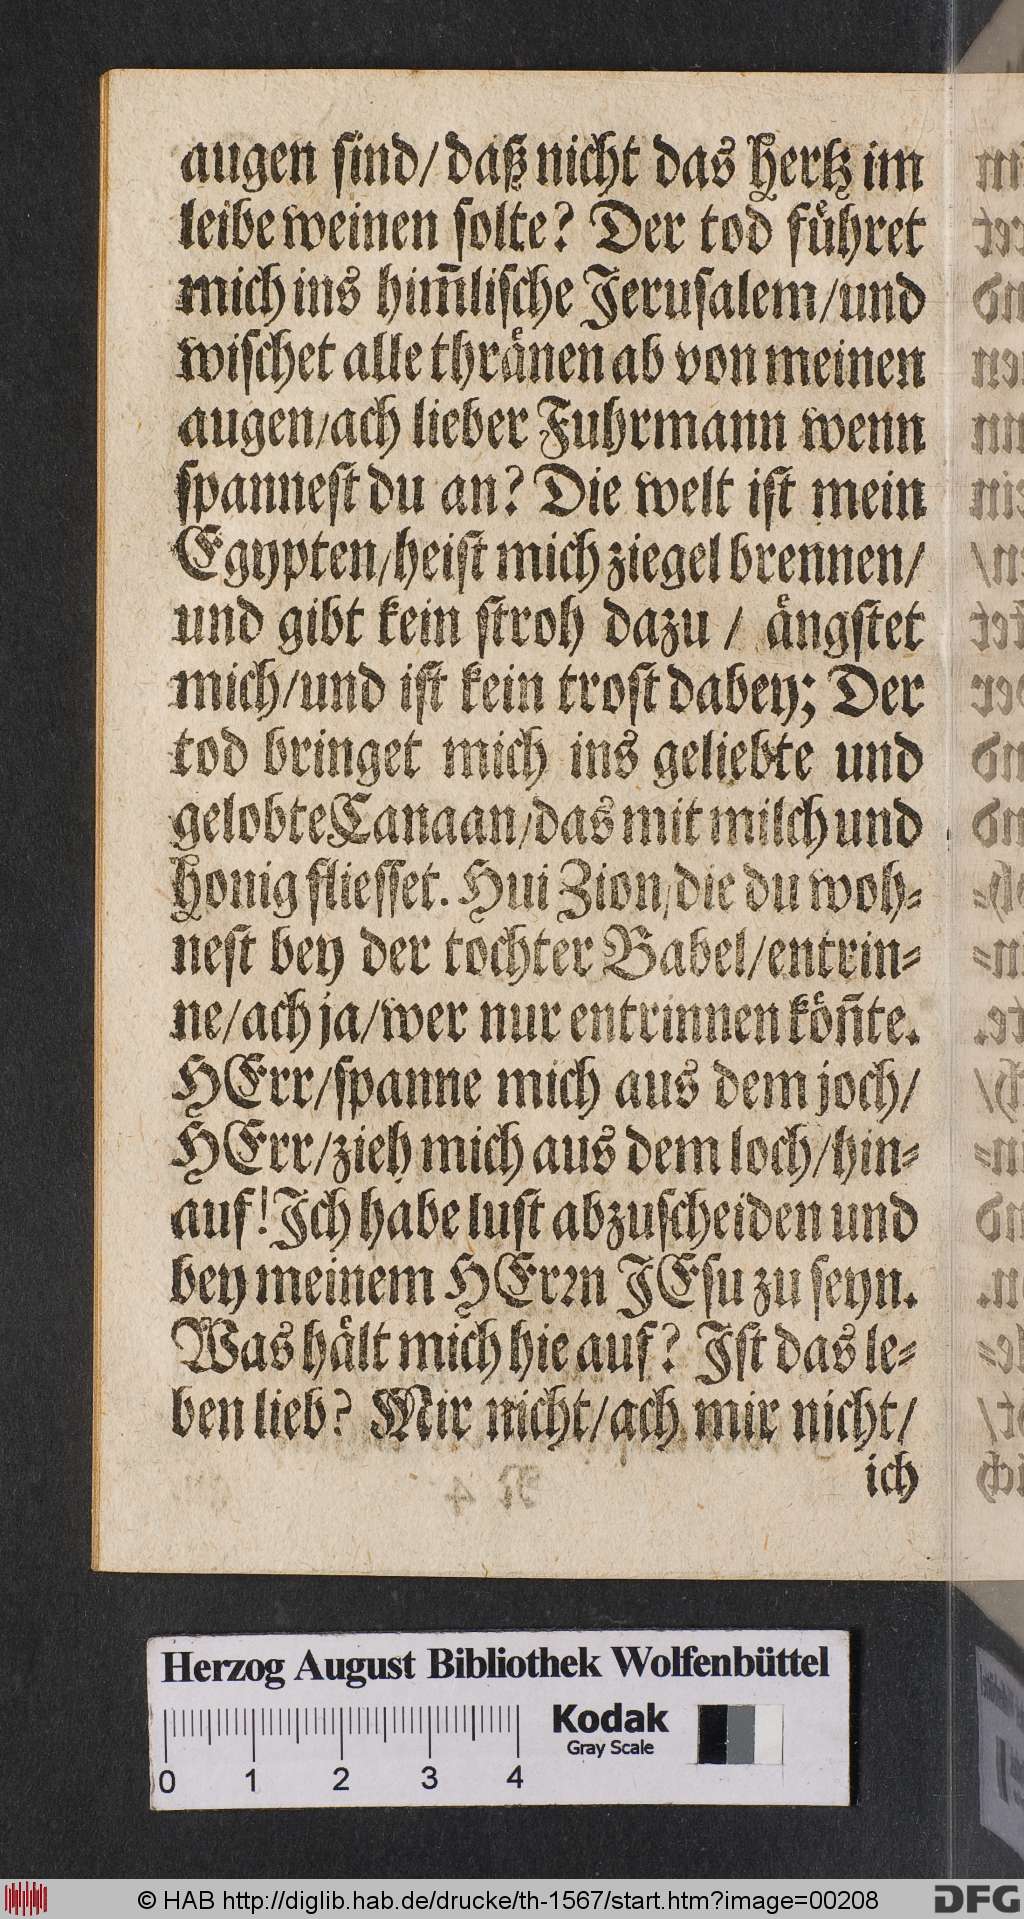 augen sind/ daß nicht das hertz im
leibe weinen solte? Der tod fuͤhret
mich ins him̃lische Jerusalem/und
wischet alle thraͤnen ab von meinen
augen/ach lieber Fuhrmann wenn
spannest du an? Die welt ist mein
Egypten/heist mich ziegel brennen/
und gibt kein stroh dazu / aͤngstet
mich/und ist kein trost dabey; Der
tod bringet mich ins geliebte und
gelobte Canaan/das mit milch und
honig fliesset. Hui Zion/die du woh-
nest bey der tochter Babel/entrin-
ne/ach ja/wer nur entrinnen koͤn̄te.
HErr/spanne mich aus dem joch/
HErr/zieh mich aus dem loch/hin-
auf! Ich habe lust abzuscheiden und
bey meinem HErꝛn JEsu zu seyn.
Was haͤlt mich hie auf? Ist das le-
ben lieb? Mir nicht/ach mir nicht/
ich
Herzog August Bibliothek Wolfenbüttel
Kodak
Gray Scale
0 1 2 3 4
© HAB http://diglib.hab.de/drucke/th-1567/start.htm?image=00208
DFG